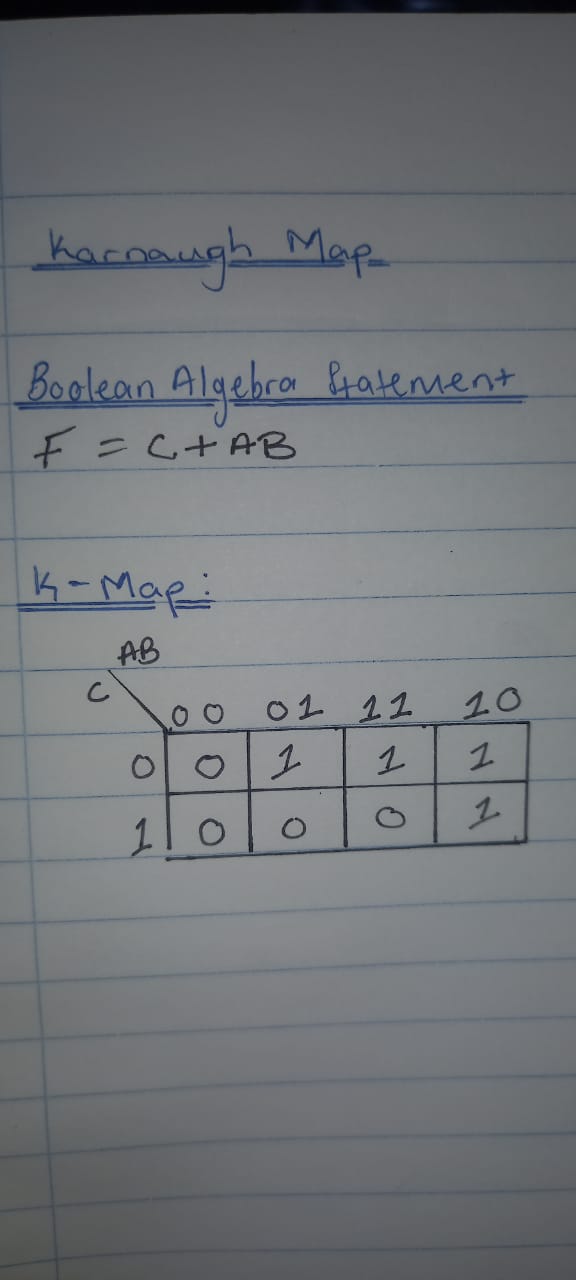 Karnaugh Map
Boolean Algebra Statement
F = C + AB
K-Map:
AB
C
00 01 11 10
0 0 1 1 1
1 0 0 0 1